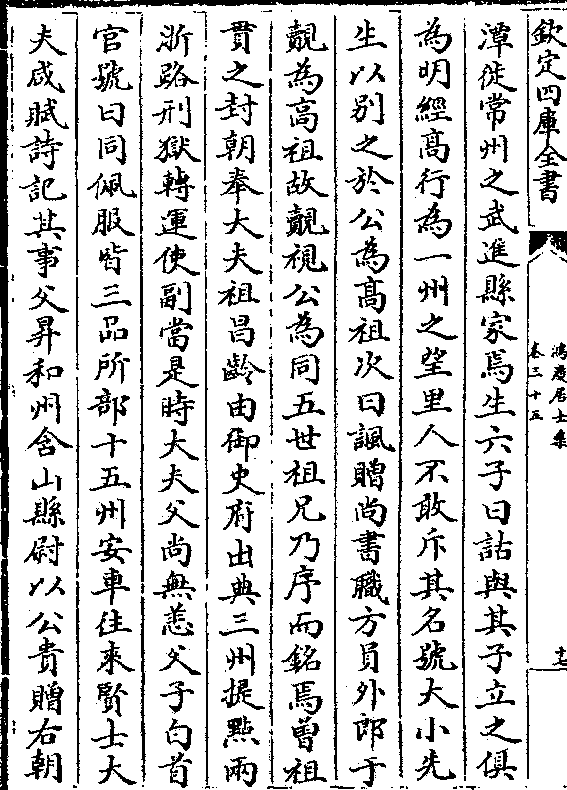 欽定四庫全書
鴻慶居士集
卷三十五
十七
潭徙常州之武進縣家焉生六子曰詁與其子立之俱
為明經高行為一州之望里人不敢斥其名號大小先
生以别之於公為髙祖次曰諷贈尚書職方員外郎于
覿為高祖故覿視公為同五世祖兄乃序而銘焉曾祖
貫之封朝奉大夫祖昌齡由御史府出典三州提㸃兩
浙路刑獄轉運使副當是時大夫父尚無恙父子白首
官號曰同佩服皆三品所部十五州安車往來賢士大
夫咸賦詩記其事父昇和州含山縣尉以公貴贈右朝